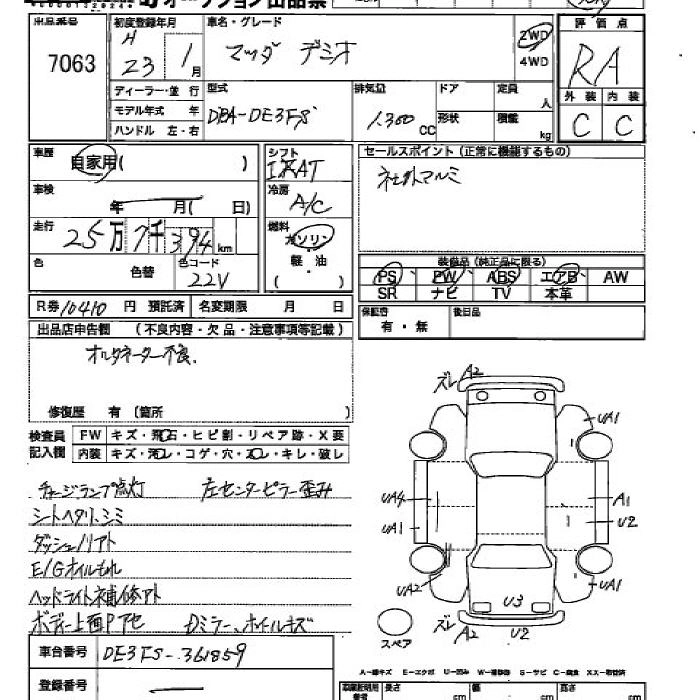 オークション出品票
出品番号 初度登録年月 車名・グレード 評価点
7063 H 23 1月 マツダ デミオ 2WD 4WD RA
ディーラー・並行 型式 排気量 ドア 定員 人 外装 内装
モデル年式 年 DBA-DE3FS 1.300 CC 形状 積載 kg C C
ハンドル 左・右
車歴 自家用( ) シフト セールスポイント(正常に機能するもの)
車検 年 月( 日) 冷房 A/C 社外アルミ
走行 25万7千394km 燃料 ガソリン 軽・油 ( ・ )
装備品(純正品に限る)
色 色替 色コード 22V
PS PW ABS エアB AW
SR ナビ TV 本革
R券10410円 預託済 名変期限 月 日
保証書 有・無 後日品
出品店申告欄 (不良内容・欠品・注意事項等記載)
オルタネーター不良.
修復歴 有(箇所 )
検査員記入欄 FW キズ・飛石・ヒビ割・リペア跡・X要
内装 キズ・汚レ・コゲ・穴・スレ・キレ・破レ
チャージランプ点灯 左センターピラー歪み
シートヘタリ、シミ
ダッシュノリアト
E/Gオイルもれ
ヘッドライト補修アト
ボディー上面Pアセ Dミラー、ホイルキズ
ズレ A2
UA1
UA4 A1
UA1 U2
UA2 UA1
U3
ズレ A2 U2
スペア
車台番号 DE3FS-361859
登録番号
A-線キズ E-エクボ U-凹み W-補修跡 S-サビ C-腐食 XX-取替済
長さ cm 幅 cm cm